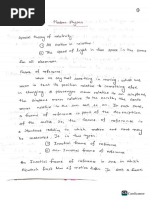 Modern Physics
Special Theory of relativity:
① All motion is relative
② The speed of light in free space is the same
for all observers.
Frame of reference:
When we say that something is moving, what we
mean is that its position relative to something else
is changing. A passenger moves relative to an airplane,
the airplane moves relative to the earth, the earth
moves relative to the sun, and so on. In each case,
a frame of reference is part of the description
of the motion. So, the frame of reference is
① Inertial frame of reference
② Non-Inertial frame of reference
An Inertial frame of reference is one in which
Newton's first law of motion holds. In such a frame
CS CamScanner